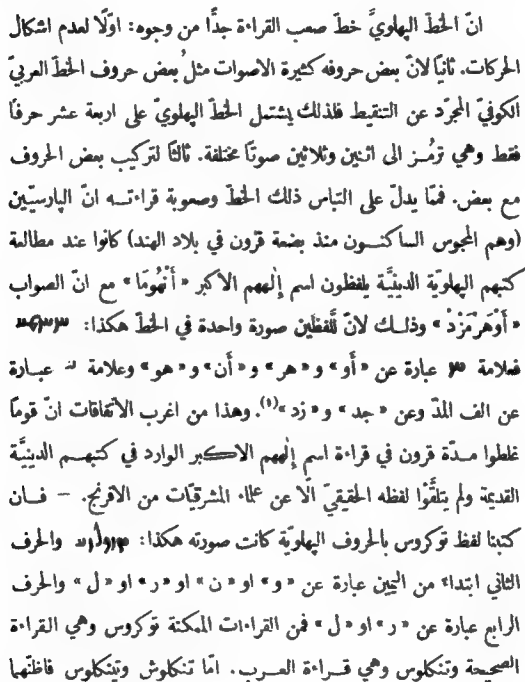 انّ الخطّ الپهلويَّ خطّ صعب القراءة جدًّا من وجوه: اوّلًا لعدم اشكال
الحركات. ثانيًا لانّ بعض حروفه كثيرة الاصوات مثل بعض حروف الخطّ العربيّ
الكوفيّ المجرّد عن التنقيط فلذلك يشتمل الخطّ الپهلويّ على اربعة عشر حرفًا
فقط وهي ترمُز الى اثنين وثلاثين صوتًا مختلفة. ثالثًا لتركيب بعض الحروف
مع بعض. فممّا يدلّ على التباس ذلك الخطّ وصعوبة قراءتـه انّ الپارسيّـين
(وهم المجوس الساكنـون منذ بضعة قرون في بلاد الهند) كانوا عند مطالعة
كتبهم الپهلويّة الدينيَّـة يلفظون اسم إلٰههم الاكبر « أَنْهُومَا » مع انّ الصواب
« أَوْهَرْمَزْدْ » وذلـك لانّ للَّفظَين صورة واحدة في الخطّ هكذا:
فعلامة عبارة عن « أو » و « هر » و « أن » و « هو » وعلامة عبـارة
عن الف المدّ وعن « جد » و « زد »⁽¹⁾. وهذا من اغرب الاتّفاقات انّ قومًا
غلطوا مـدّة قرون في قراءة اسم إلٰههم الاكـبر الوارد في كتبهـم الدينيَّـة
القديمة ولم يتلقَّوْا لفظه الحقيقيّ الّا عن علماء المشرقيّات من الافرنج. – فـان
كتبنا لفظ توكروس بالحروف الپهلويّة كانت صورته هكذا: والحرف
الثاني ابتداءً من اليمين عبارة عن « و » او « ن » او « ر » او « ل » والحرف
الرابع عبارة عن « ر » او « ل » فمن القراءات الممكنة توكروس وهي القراءة
الصحيحة وتنكلوس وهي قـراءة العـرب. امّا تنكلوش وتينكلوس فاظنّهما